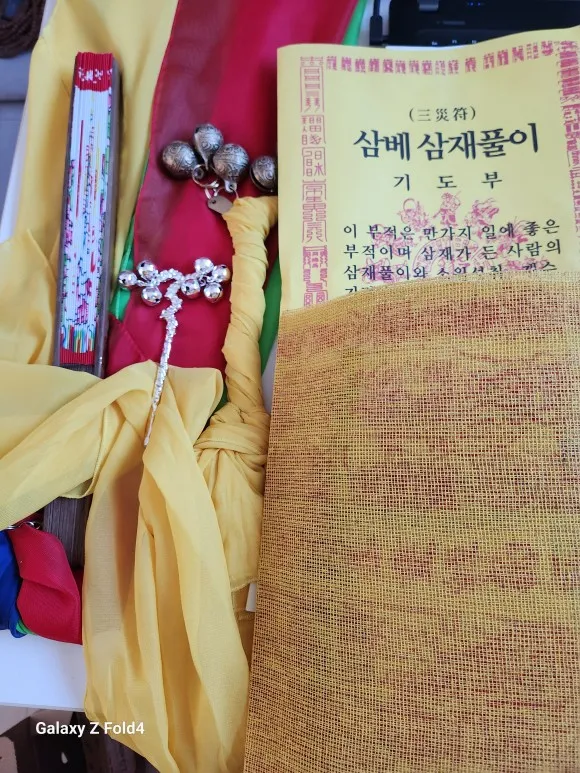 (三災符)
삼베 삼재풀이
기도부
이 부적은 만가지 일에 좋은
부적이며 삼재가 든 사람의
삼재풀이와
Galaxy Z Fold4